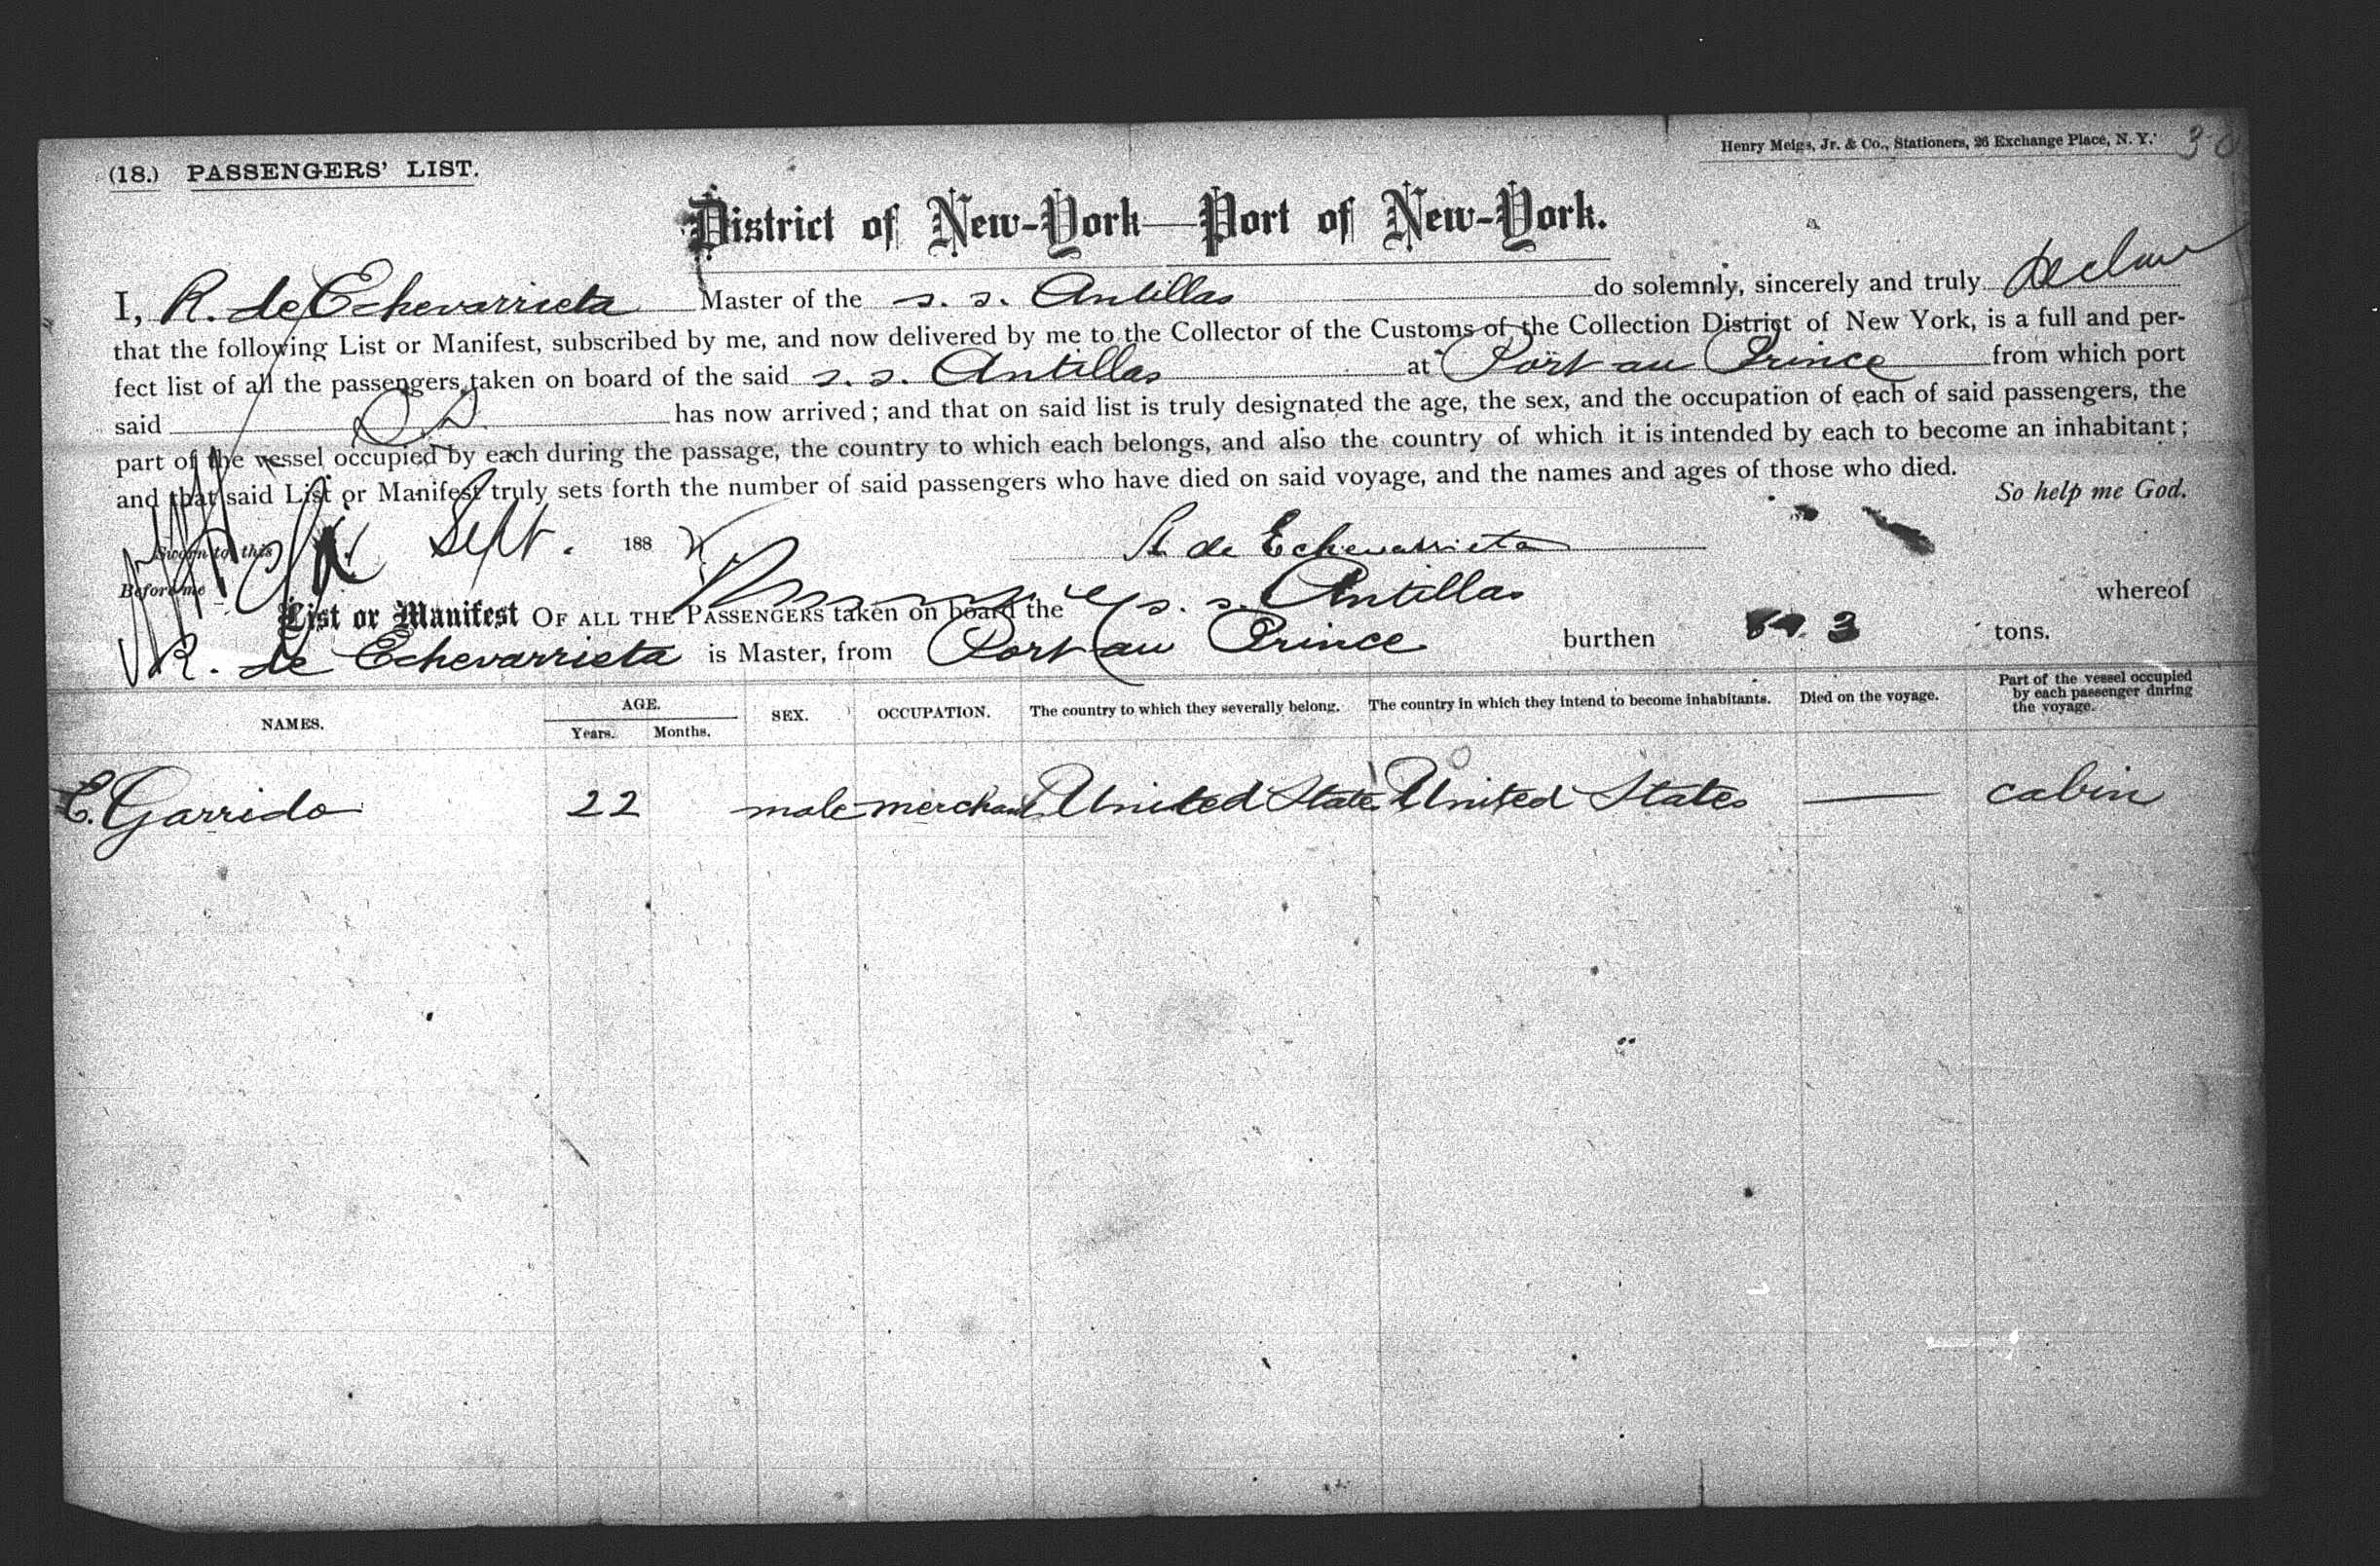 Henry Meigs, Jr. & Co., Stationers, 26 Exchange Place, N. Y.
30
(18.) PASSENGERS' LIST.
District of New-York—Port of New-York.
I, R. de Echevarrieta Master of the s. s. Antillas do solemnly, sincerely and truly declare
that the following List or Manifest, subscribed by me, and now delivered by me to the Collector of the Customs of the Collection District of New York, is a full and per-
fect list of all the passengers taken on board of the said s. s. Antillas at Port au Prince from which port
said has now arrived; and that on said list is truly designated the age, the sex, and the occupation of each of said passengers, the
part of the vessel occupied by each during the passage, the country to which each belongs, and also the country of which it is intended by each to become an inhabitant;
and that said List or Manifest truly sets forth the number of said passengers who have died on said voyage, and the names and ages of those who died.
So help me God.
Sworn to this Sept. 188
R de Echevarrieta
Before me
List or Manifest OF ALL THE PASSENGERS taken on board the s. s. Antillas whereof
R. de Echevarrieta is Master, from Port au Prince burthen tons.
NAMES. AGE. Years. Months. SEX. OCCUPATION. The country to which they severally belong. The country in which they intend to become inhabitants. Died on the voyage. Part of the vessel occupied by each passenger during the voyage.
E. Garrido 22 male merchant United States United States — cabin